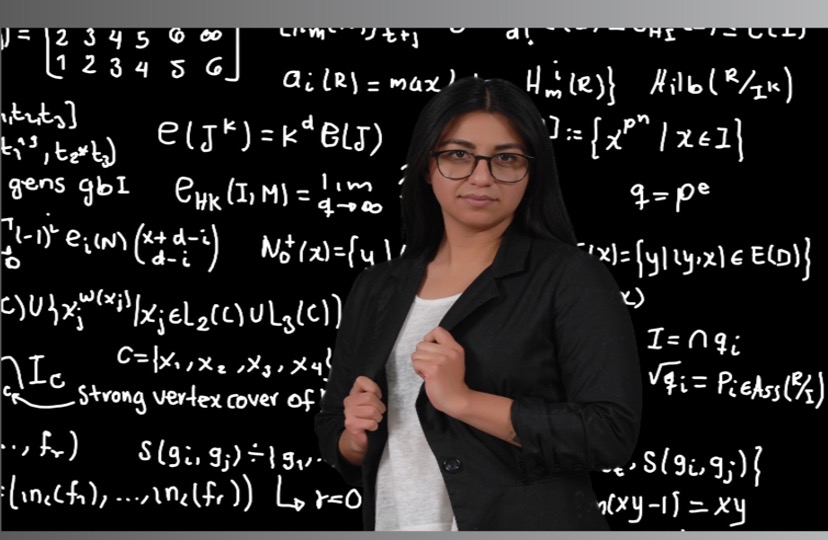 ) = [2 3 4 5 6 ∞
1 2 3 4 5 6]
a_i(R) = max
H^i_m(R)} Hilb(R/I^k)
,t_2,t_3]
e(J^k) = k^d e(J)
] := {x^{p^n} | x ∈ I}
, t_2*t_3)
gens gb I
e_HK (I, M) = lim q→∞
q = p^e
(-1)^i e_i(N) (x+d-i d-i)
N_0^+(x) = {y |
(x) = {y | (y,x) ∈ E(D)}
C) ∪ {x_j^{w(x_j)} | x_j ∈ L_2(C) ∪ L_3(C)}
x)
I = ∩ q_i
C = {x_1, x_2, x_3, x_4}
∩ I_C
√q_i = P_i ∈ Ass(R/I)
C Strong vertex cover of
.., f_r)
S(g_i, g_j) ÷ {g_1, ..
, S(g_i, g_j)}
(in_<(f_1), ..., in_<(f_r)) ↳ r=0
(xy-1) = xy